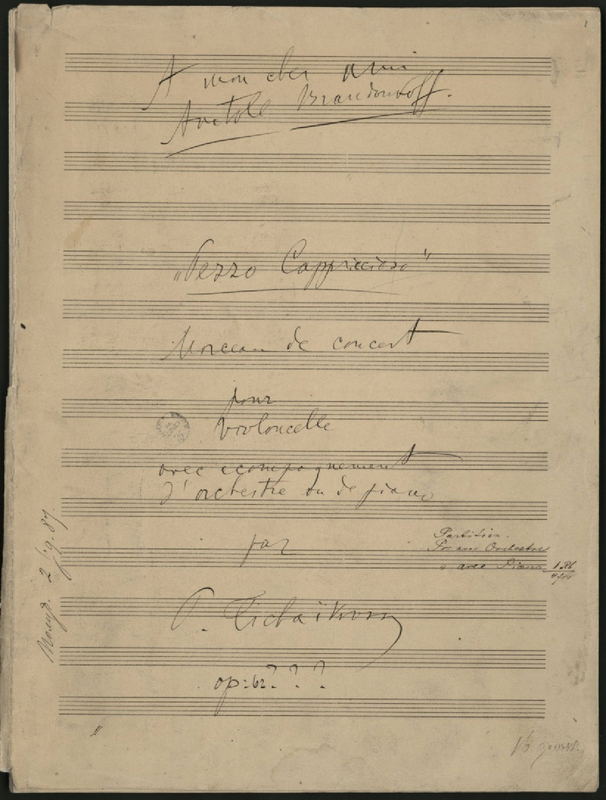 A mon cher ami
Anatole Brandoukoff.
„Pezzo Cappriccioso"
Morceau de concert
pour
violoncelle
avec accompagnement
d'orchestre ou de piano
par
P. Tschaikovsky
op: 62? ? ?
Partition
avec Piano